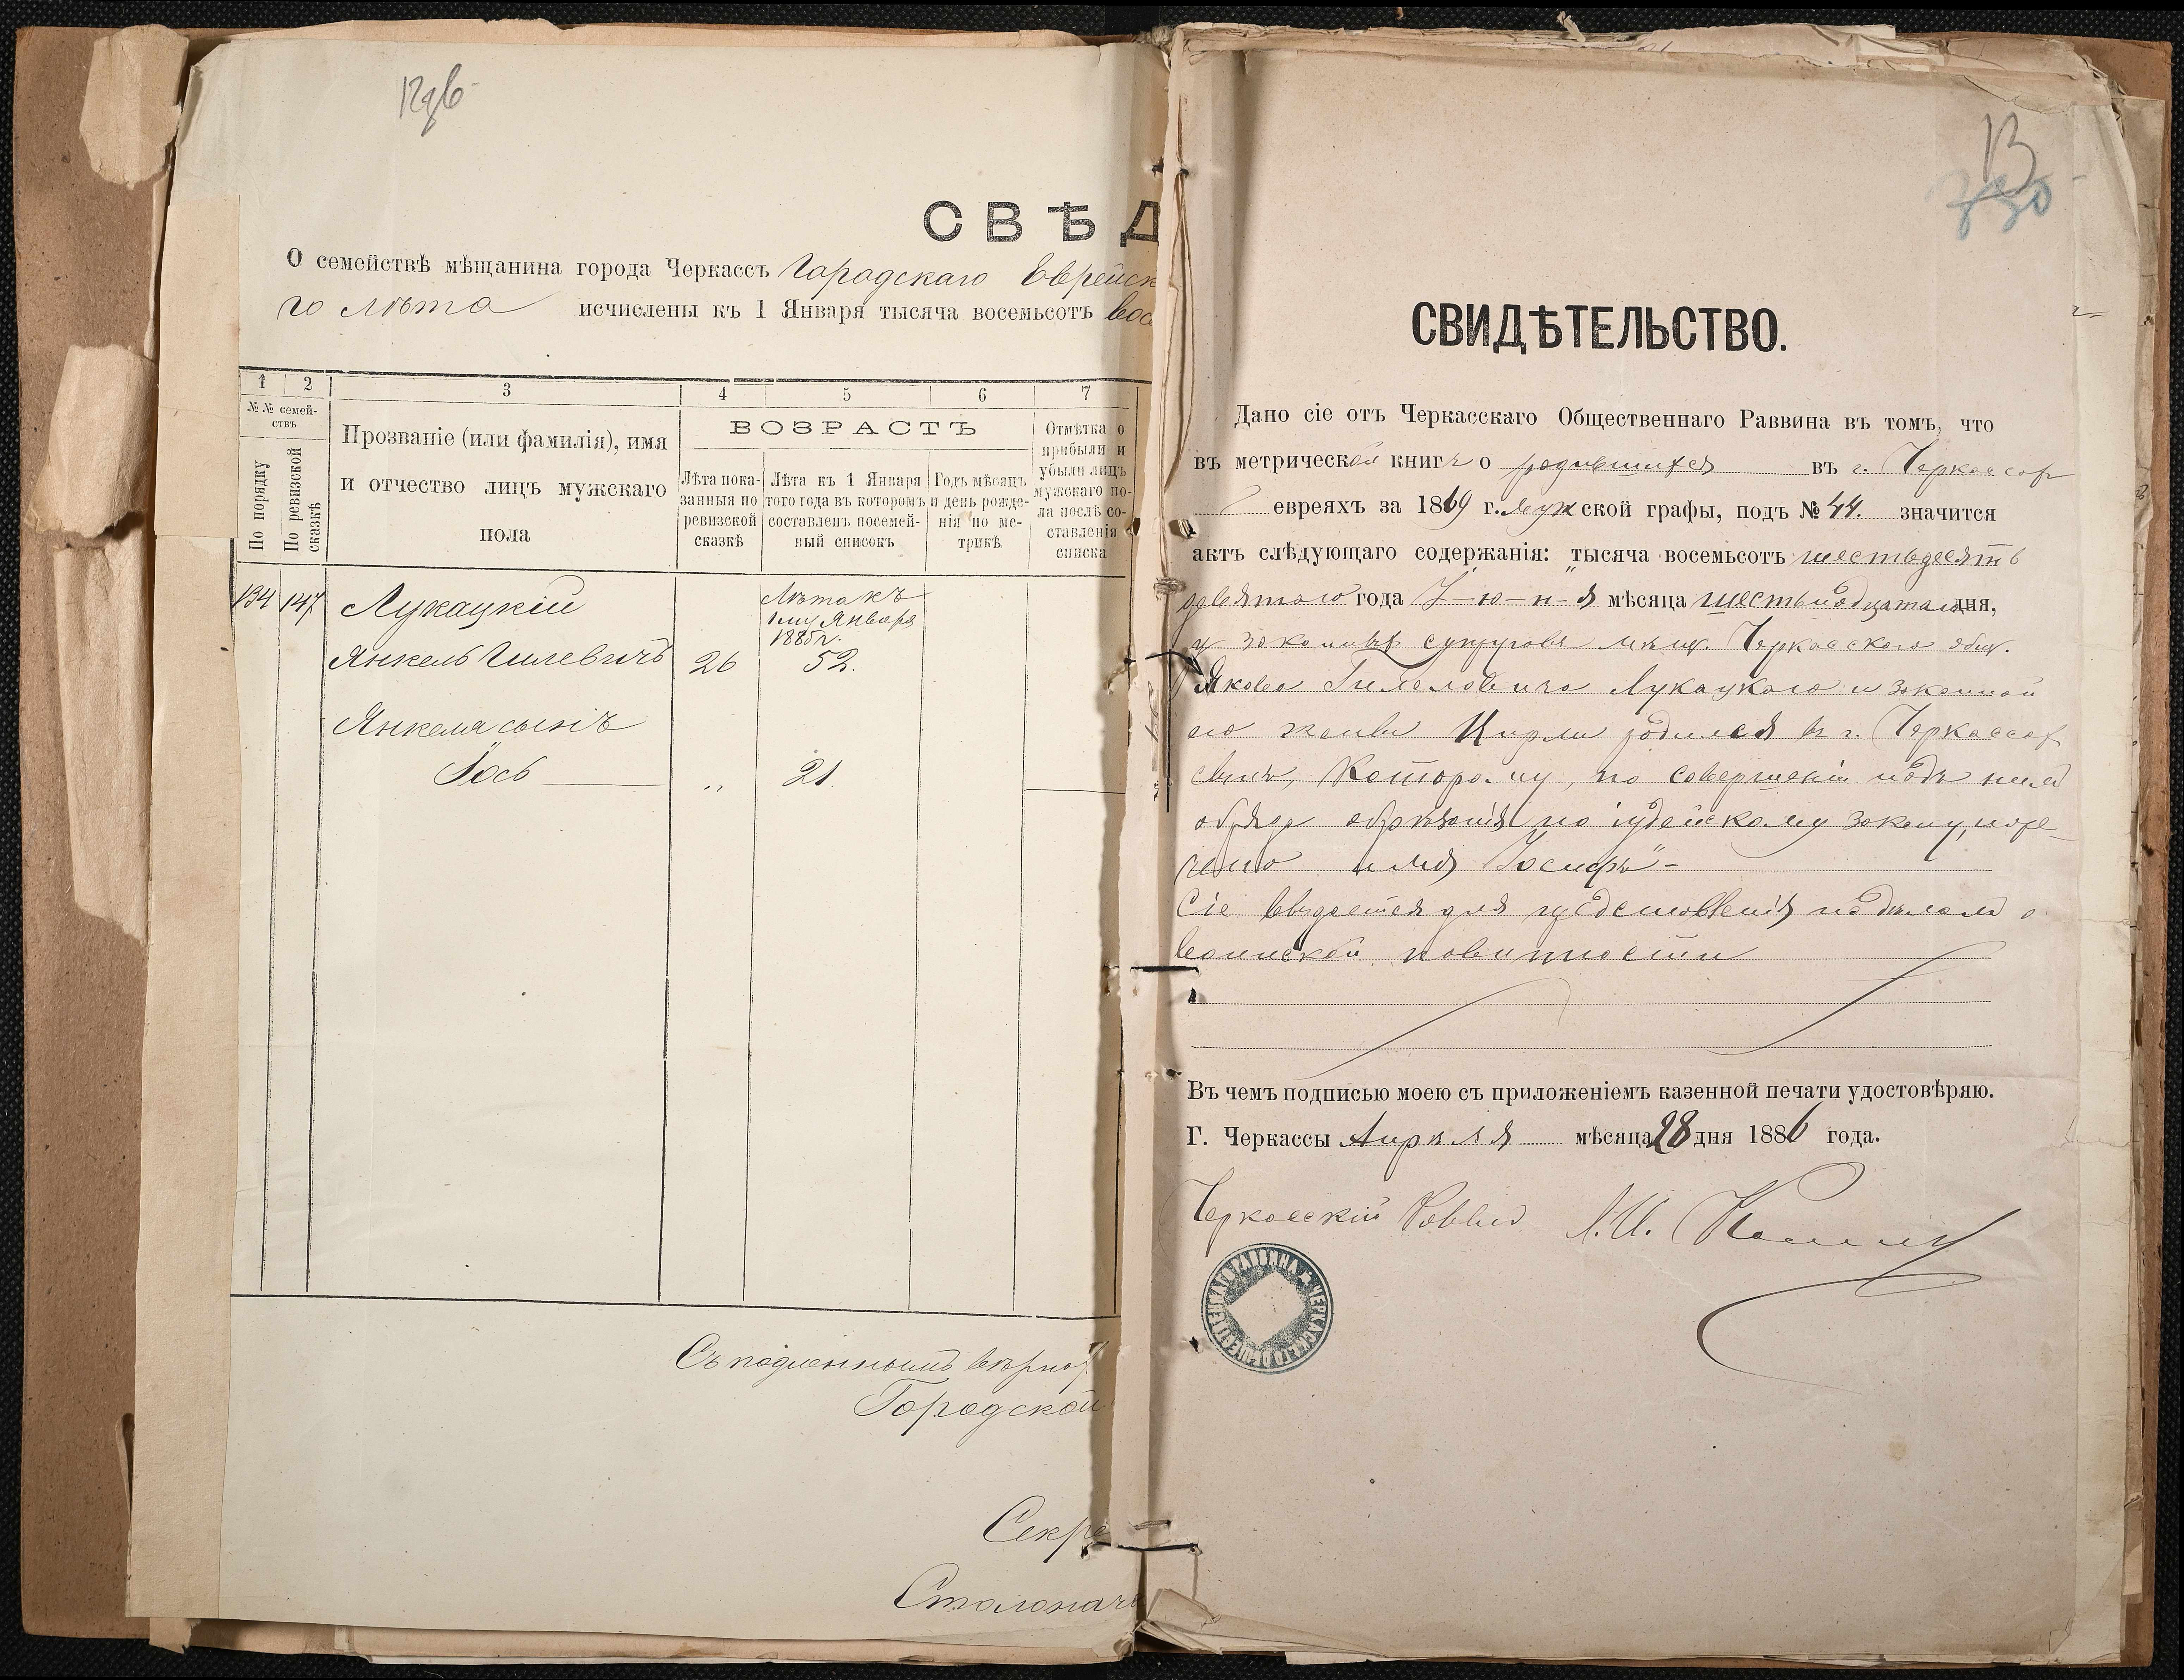 12дв
СВѢД
О семействѣ мѣщанина города Черкассъ Городскаго Еврейск
го лѣта исчислены къ 1 Января тысяча восемьсотъ вос
1 2 3 4 5 6 7
№№ семей-
ствъ
По порядку
По ревизской
сказкѣ
Прозваніе (или фамилія), имя
и отчество лицъ мужскаго
пола
ВОЗРАСТЪ
Лѣта пока-
занныя по
ревизской
сказкѣ
Лѣта къ 1 Января
того года въ которомъ
составленъ посемей-
ный списокъ
Годъ мѣсяцъ
и день рожде-
нія по ме-
трикѣ
Отмѣтка о
прибыли и
убыли лицъ
мужскаго по-
ла послѣ со-
ставленія
списка
134 147 Лукацкій
Лѣта къ
1му Января
1885 г.
Янкель Гилевичъ 26 52.
Янкеля сынъ
Іось „ 21.
Съ подленнымъ вѣрно
Городской
Секре
Столонач
13
СВИДѢТЕЛЬСТВО.
Дано сіе отъ Черкасскаго Общественнаго Раввина въ томъ, что
въ метрической книгѣ о родившихся въ г. Черкассах
евреяхъ за 1869 г. мужской графы, подъ № 44. значится
актъ слѣдующаго содержанія: „тысяча восемьсотъ шестьдесятъ
девятаго года І-ю-н-я мѣсяца шестьнадцатаго дня,
у законныхъ супруговъ мѣщ. Черкасскаго общ.
Якова Гилеловича Лукацкаго и законной
его жены Цирли родился въ г. Черкассах
сынъ, которому, по совершеніи надъ нимъ
обряда обрѣзанія по іудейскому закону, наре-
чено имя Іосифъ" -
Сіе выдается для представленія по дѣламъ о
воинской повинности
Въ чемъ подписью моею съ приложеніемъ казенной печати удостовѣряю.
Г. Черкассы Апрѣля мѣсяца 28 дня 1886 года.
Черкасскій Раввин